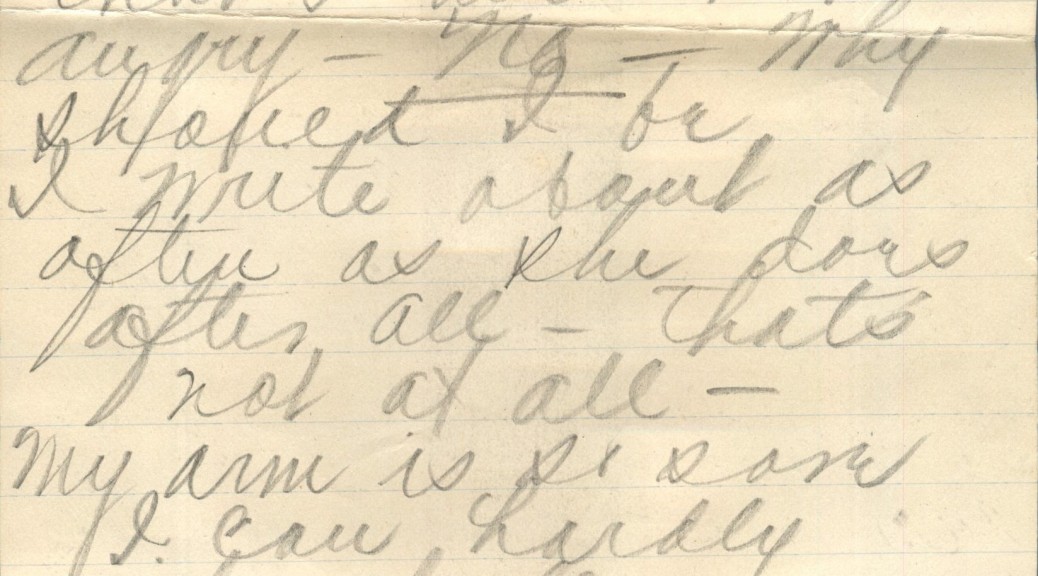 angry — No — Why
should I be
I write about as
often as she does
after all — thats
not at all —
My arm is so sore
I can hardly